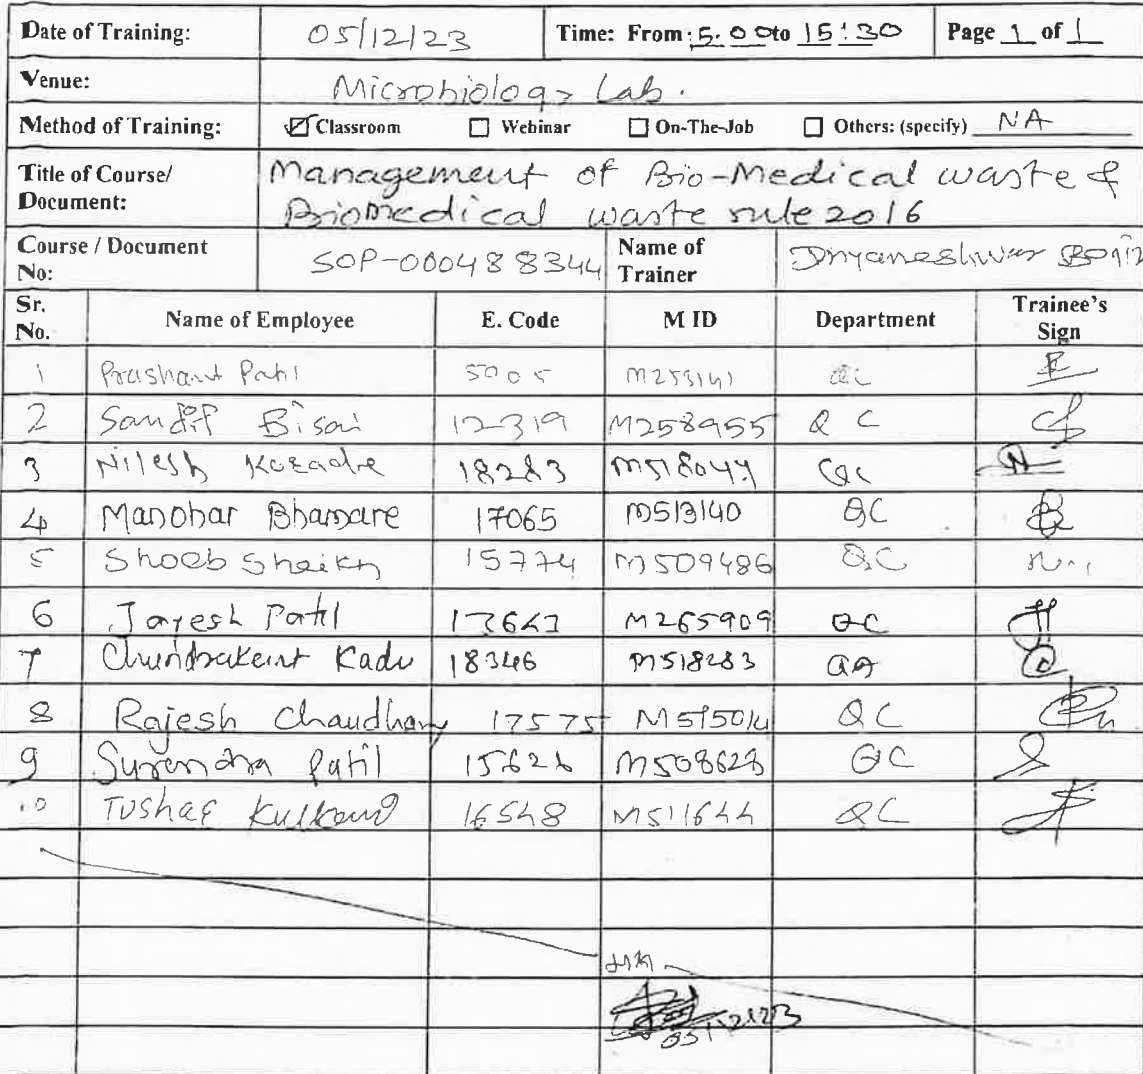 Date of Training: 05/12/23 Time: From: 5.00 to 15:30 Page 1 of 1
Venue: Microbiology Lab.
Method of Training: ☑ Classroom ☐ Webinar ☐ On-The-Job ☐ Others: (specify) NA
Title of Course/ Management of Bio-Medical waste &
Document: Biomedical waste rule 2016
Course / Document No: SOP-000488344 Name of Trainer Dnyaneshwar
Sr. No. Name of Employee E. Code M ID Department Trainee's Sign
1 Prashant Patil 5005 M253141 QC
2 Sandip Bisai 12319 M258955 QC
3 Nilesh 18283 M518044 QC
4 Manohar Bhamare 17065 M513140 QC
5 Shoeb Sheikh 15774 M509486 QC
6 Jayesh Patil M265909 QC
7 Chandrakant Kadu 18346 M518283 QA
8 Rajesh Chaudhary 17575 M515014 QC
9 Surendra Patil 15626 M508623 QC
10 Tushar Kulkarni 16548 M511644 QC
05/12/23